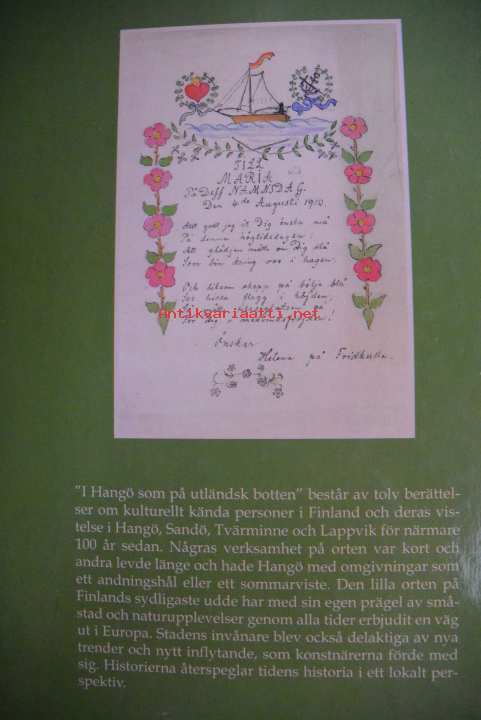 TILL
MARIA
På Dess NAMNSDAG.
Den 4de Augusti 1910.
Allt godt jag vill Dig önska må
På denna högtidsdagen;
Att glädjen måtte om Dig slå
Som bin kring ros i hagen.
Och liksom skepp på bölja blå
Ses hissa flagg i höjden,
Antikvariaatti.net
Önskar
Helena på Fridkulla.
"I Hangö som på utländsk botten" består av tolv berättel-
ser om kulturellt kända personer i Finland och deras vis-
telse i Hangö, Sandö, Tvärminne och Lappvik för närmare
100 år sedan. Någras verksamhet på orten var kort och
andra levde längre och hade Hangö med omgivningar som
ett andningshål eller ett sommarviste. Den lilla orten på
Finlands sydligaste udde har med sin egen prägel av små-
stad och naturupplevelser genom alla tider erbjudit en väg
ut i Europa. Stadens invånare blev också delaktiga av nya
trender och nytt inflytande, som konstnärerna förde med
sig. Historierna återspeglar tidens historia i ett lokalt per-
spektiv.